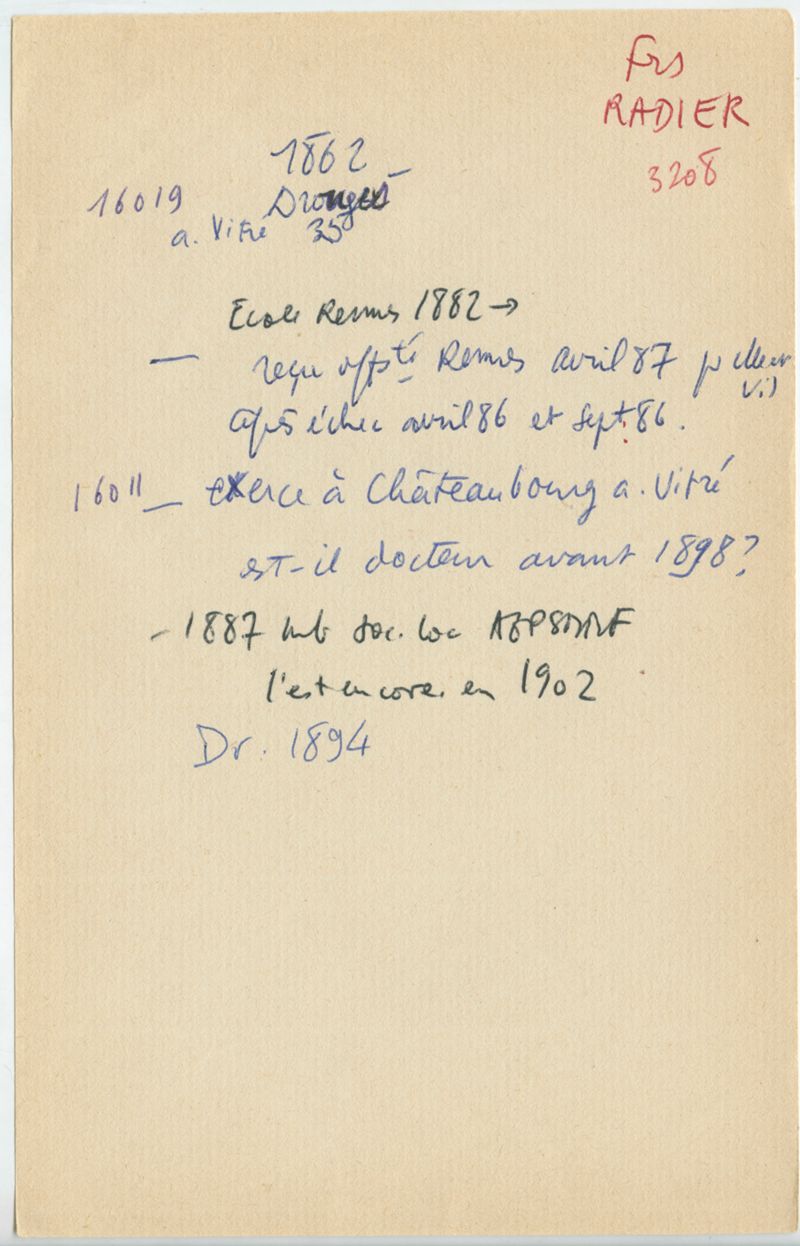 Frs
RADIER
3208
1862
16019 Drouges
a. Vitré 35
Ecole Rennes 1882 →
— reçu offté Rennes avril 87 p
Vil
après échec avril 86 et sept. 86.
16011 — exerce à Châteaubourg a. Vitré
est-il docteur avant 1898?
- 1887 mb soc. loc
l'est encore en 1902
Dr. 1894